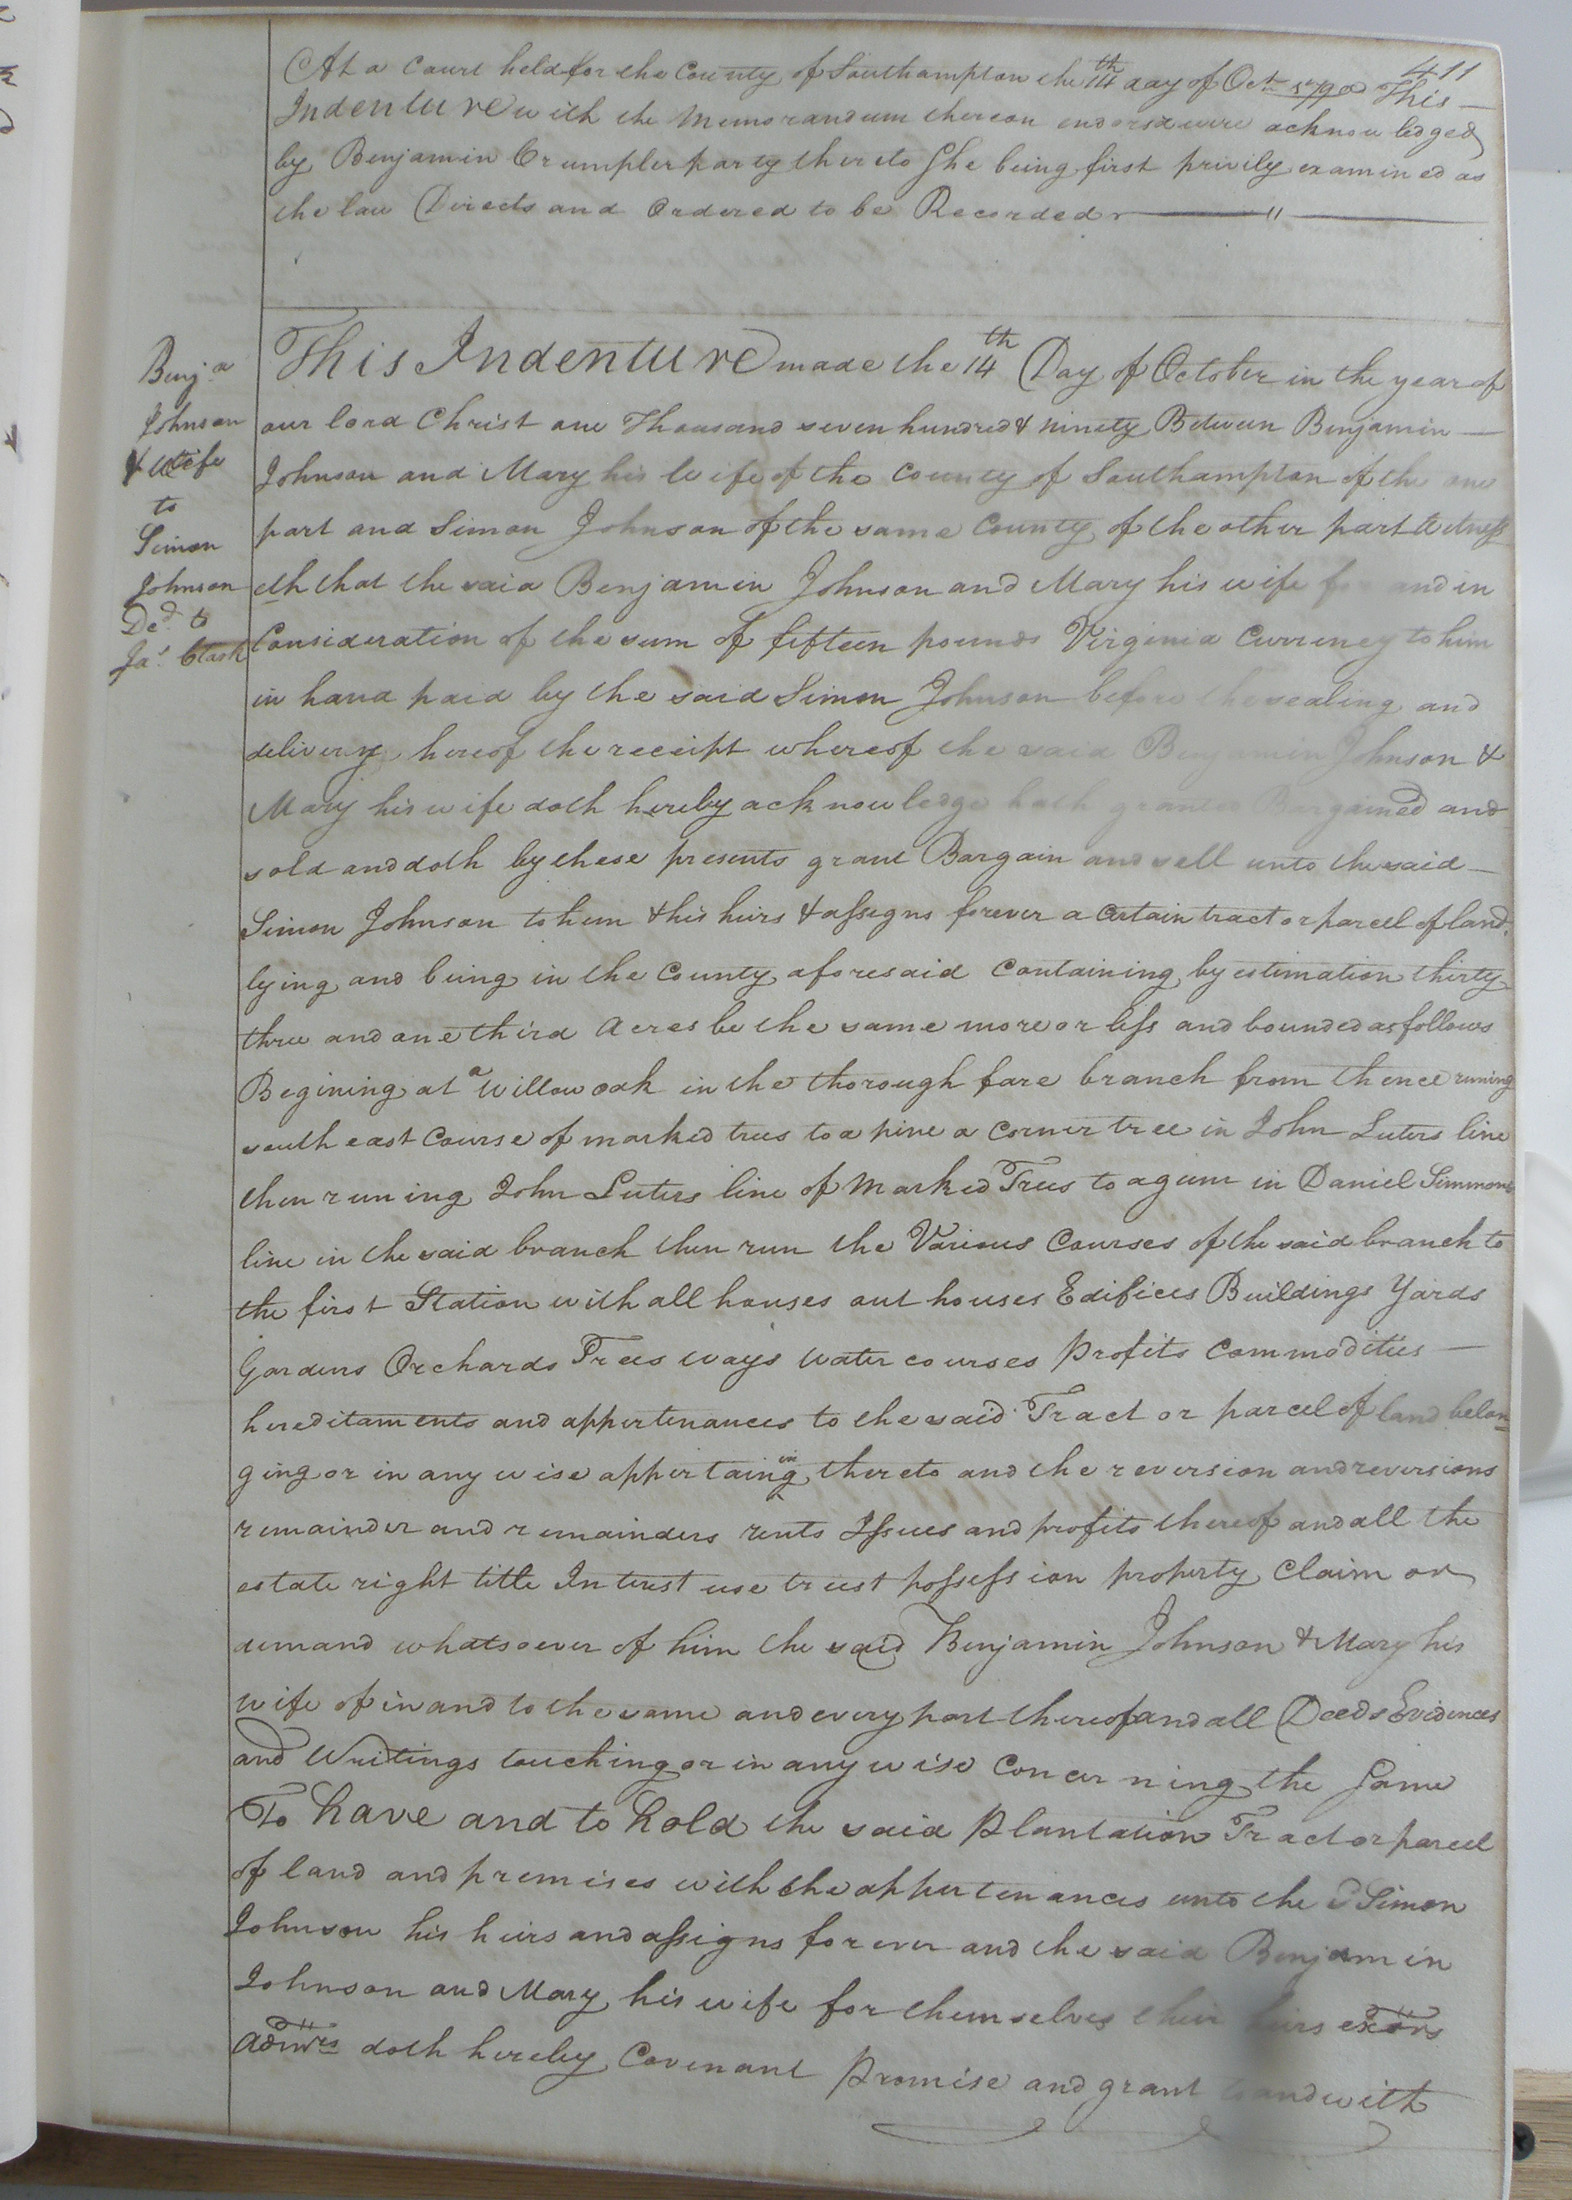 411
At a Court held for the County of Southampton the 14th day of Octr 1790 This
Indenture with the Memorandum thereon endorsd were acknowledged
by Benjamin Crumpler party thereto She being first privily examined as
the law Directs and Ordered to be Recorded
Benja
Johnson
& Wife
to
Simon
Johnson
Ded. to
Jas.
This Indenture made the 14th Day of October in the year of
our lord Christ one Thousand seven hundred & ninety Between Benjamin
Johnson and Mary his Wife of the County of Southampton of the one
part and Simon Johnson of the same County of the other part Witness
eth that the said Benjamin Johnson and Mary his wife for and in
Consideration of the sum of fifteen pounds Virginia Currency to him
in hand paid by the said Simon Johnson before the sealing and
delivery hereof the receipt whereof the said Benjamin Johnson &
Mary his wife doth hereby acknowledge hath granted Bargained and
sold and doth by these presents grant Bargain and sell unto the said
Simon Johnson to him & his heirs & assigns forever a Certain tract or parcel of land
lying and being in the County aforesaid Containing by estimation thirty
three and one third Acres be the same more or less and bounded as follows
Begining at a Willow oak in the thorough fare branch from thence runing
south east Course of marked trees to a pine a Corner tree in John Luters line
then runing John Luters line of Marked Trees to a gum in Daniel Simmons
line in the said branch then run the Various Courses of the said branch to
the first Station with all houses out houses Edifices Buildings Yards
Gardens Orchards Trees ways water courses Profits Commodities
hereditaments and appertenances to the said Tract or parcel of land belon
ging or in any wise appertaining thereto and the reversion and reversions
remainder and remainders rents Issues and profits thereof and all the
estate right title Interest use trust possession property Claim or
demand whatsoever of him the said Benjamin Johnson & Mary his
wife of in and to the same and every part thereof and all Deeds Evidences
and Writings touching or in any wise Concerning the Same
To have and to hold the said Plantation Tract or parcel
of land and premises with the appertenances unto the sd Simon
Johnson his heirs and assigns forever and the said Benjamin
Johnson and Mary his wife for themselves their heirs exors
Admrs doth hereby Covenant Promise and grant to and with